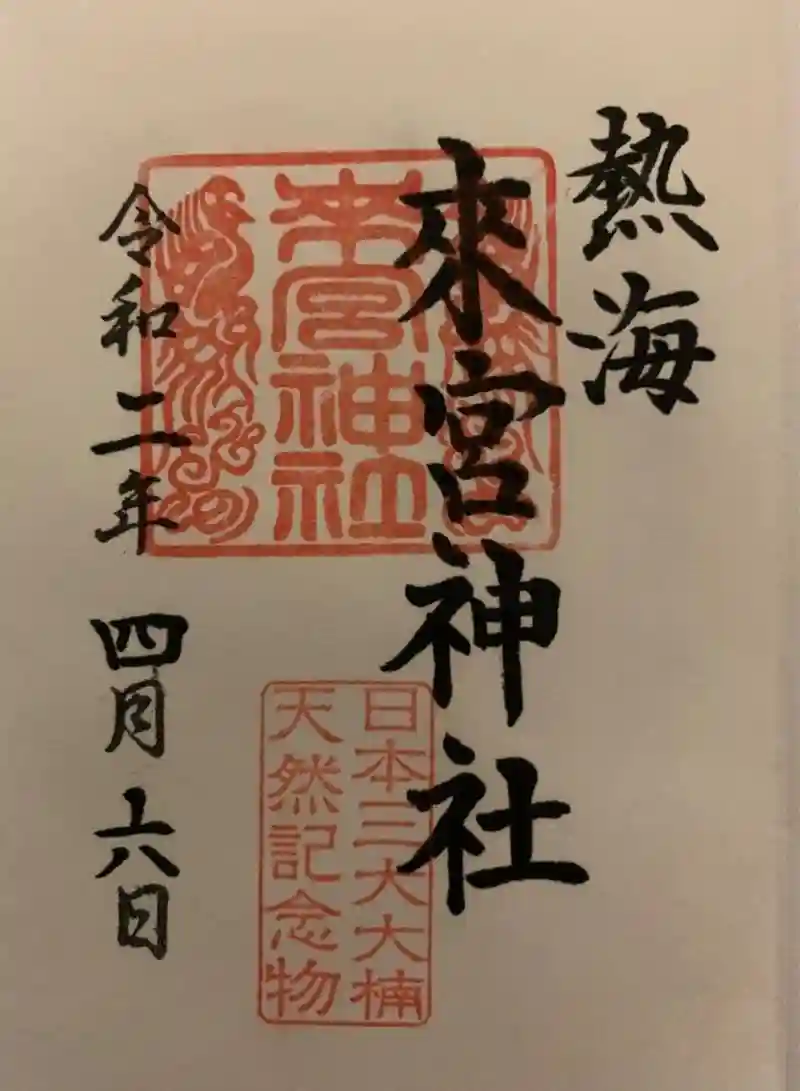 熱海
來宮神社
來宮神社
日本三大大楠
天然記念物
令和二年 四月十六日